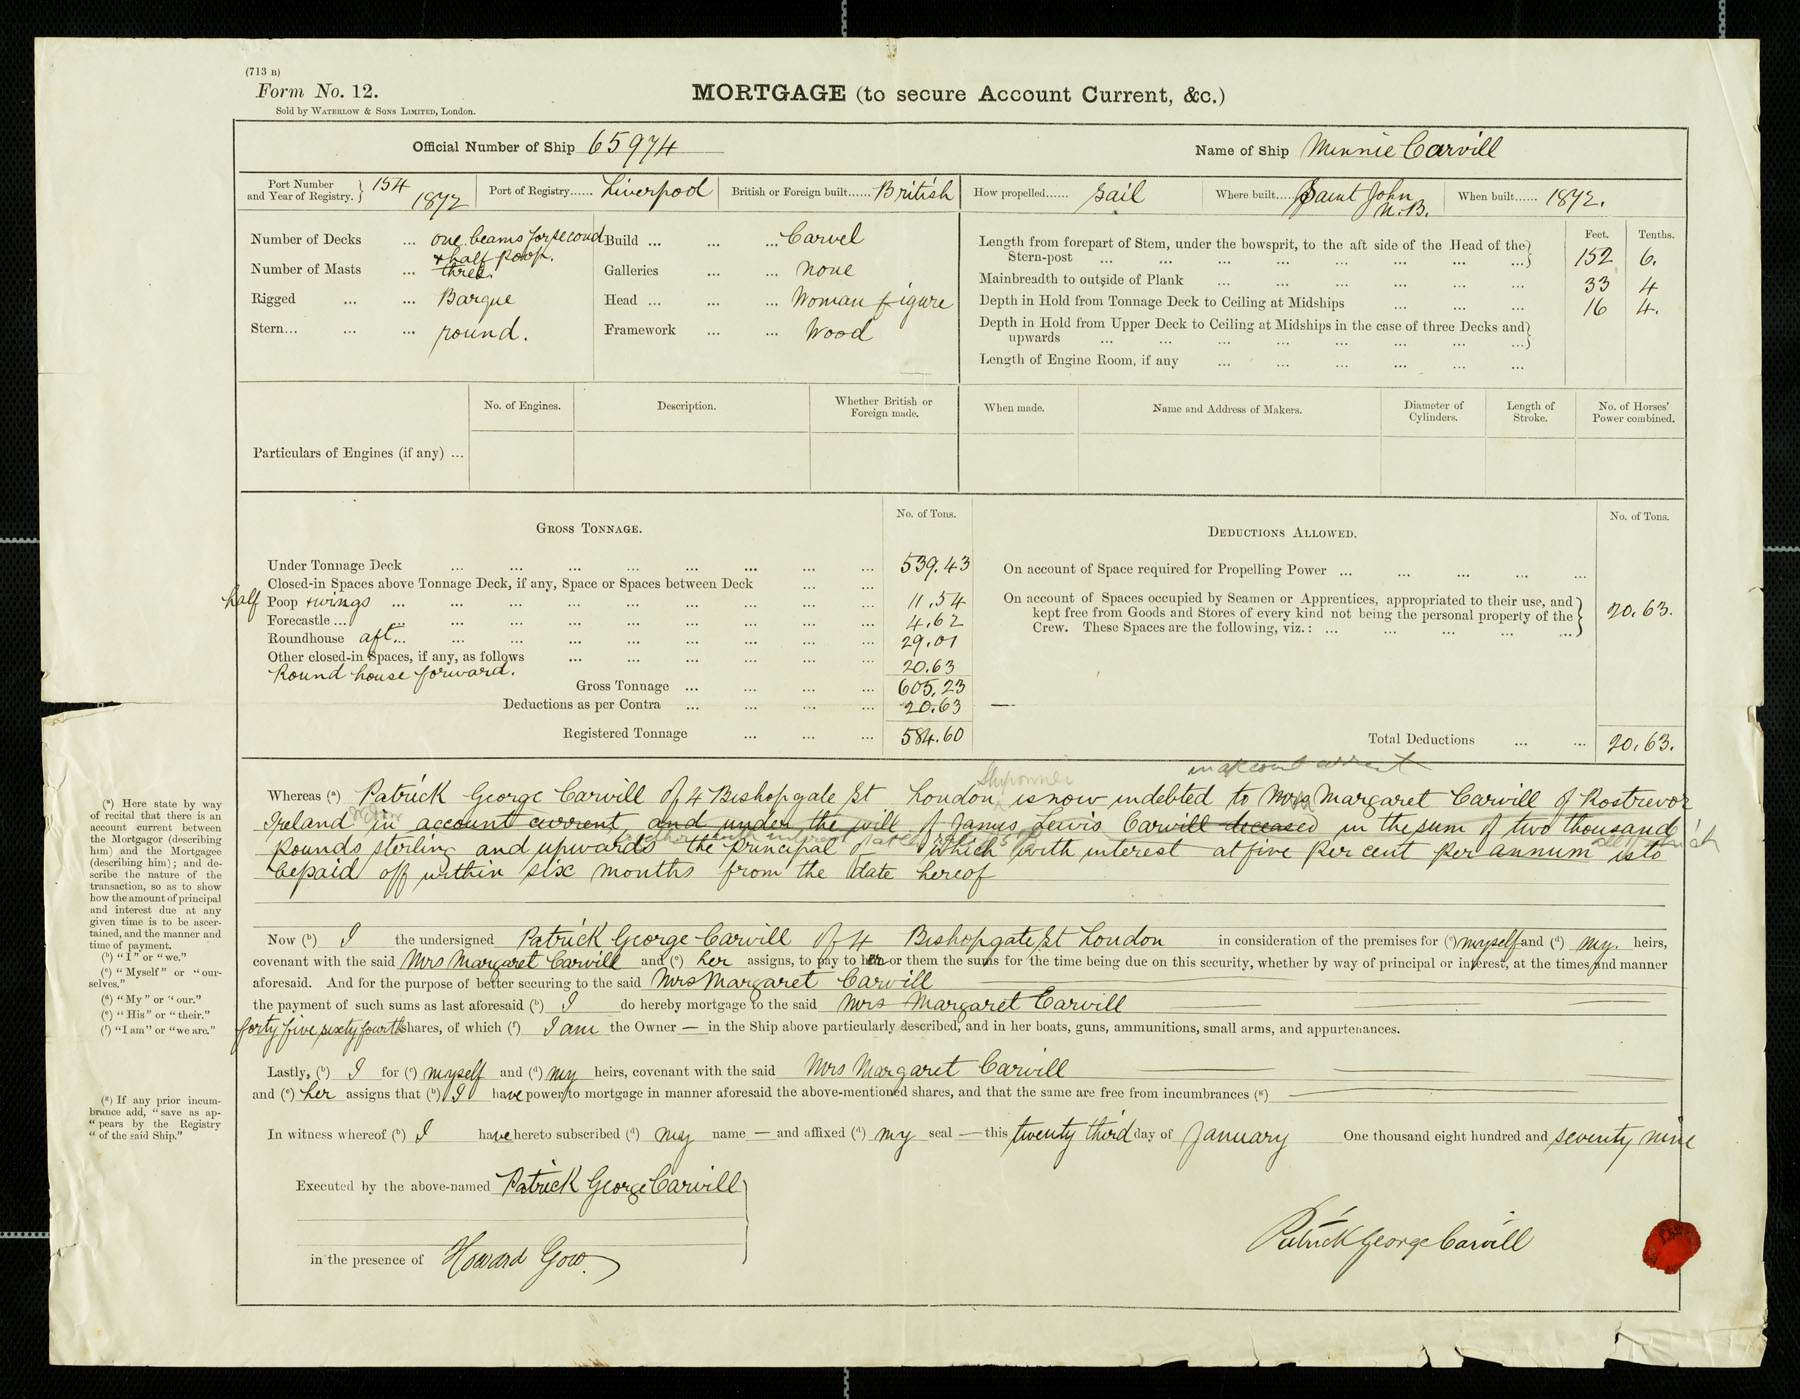 (713 B)
Form No. 12.
Sold by WATERLOW & SONS LIMITED, London.
MORTGAGE (to secure Account Current, &c.)
Official Number of Ship 65974
Name of Ship Minnie Carvill
Port Number and Year of Registry. } 154 1872
Port of Registry...... Liverpool
British or Foreign built...... British
How propelled...... Sail
Where built.... Saint John N.B.
When built...... 1872.
Number of Decks ... one beams for second & half Poop.
Number of Masts ... three.
Rigged ... ... Barque
Stern... ... ... round.
Build ... ... ... Carvel
Galleries ... ... none
Head ... ... ... Woman figure
Framework ... ... Wood
Feet. Tenths.
Length from forepart of Stem, under the bowsprit, to the aft side of the Head of the
Stern-post ... ... ... ... ... ... ... ... } 152 6.
Mainbreadth to outside of Plank ... ... ... ... ... ... 33 4
Depth in Hold from Tonnage Deck to Ceiling at Midships ... ... ... 16 4.
Depth in Hold from Upper Deck to Ceiling at Midships in the case of three Decks and
upwards ... ... ... ... ... ... ... ... }
Length of Engine Room, if any ... ... ... ... ... ...
Particulars of Engines (if any) ...
No. of Engines.
Description.
Whether British or Foreign made.
When made.
Name and Address of Makers.
Diameter of Cylinders.
Length of Stroke.
No. of Horses' Power combined.
GROSS TONNAGE.
No. of Tons.
Under Tonnage Deck ... ... ... ... ... ... ... ... 539.43
Closed-in Spaces above Tonnage Deck, if any, Space or Spaces between Deck ... ...
half Poop & wings ... ... ... ... ... ... ... ... ... 11.54
Forecastle ... ... ... ... ... ... ... ... ... 4.62
Roundhouse aft... ... ... ... ... ... ... ... ... 29.01
Other closed-in Spaces, if any, as follows ... ... ... ... ... ...
Round house forward. 20.63
Gross Tonnage ... ... ... ... 605.23
Deductions as per Contra ... ... ... ... 20.63 —
Registered Tonnage ... ... ... 584.60
DEDUCTIONS ALLOWED.
No. of Tons.
On account of Space required for Propelling Power ... ... ... ... ...
On account of Spaces occupied by Seamen or Apprentices, appropriated to their use, and
kept free from Goods and Stores of every kind not being the personal property of the
Crew. These Spaces are the following, viz.: ... ... ... ... ... } 20.63.
Total Deductions ... ... 20.63.
Shipowner in account current
Whereas (a) Patrick George Carvill of 4 Bishopgate St London is now indebted to Mrs Margaret Carvill of Rostrevor
Ireland in account current and under the will of James Lewis Carvill deceased in the sum of two thousand
pounds sterling and upwards the principal of which with interest at five per cent per annum is to
be paid off within six months from the date hereof
Now (b) I the undersigned Patrick George Carvill of 4 Bishopgate St London in consideration of the premises for (c) myself and (d) my. heirs,
covenant with the said Mrs Margaret Carvill and (e) her assigns, to pay to her or them the sums for the time being due on this security, whether by way of principal or interest, at the times and manner
aforesaid. And for the purpose of better securing to the said Mrs Margaret Carvill
the payment of such sums as last aforesaid (b) I do hereby mortgage to the said Mrs Margaret Carvill
forty five sixty fourth shares, of which (f) I am the Owner — in the Ship above particularly described, and in her boats, guns, ammunitions, small arms, and appurtenances.
Lastly, (b) I for (c) myself and (d) my heirs, covenant with the said Mrs Margaret Carvill
and (e) her assigns that (b) I have power to mortgage in manner aforesaid the above-mentioned shares, and that the same are free from incumbrances (g)
In witness whereof (b) I have hereto subscribed (d) my name — and affixed (d) my seal — this twenty third day of January One thousand eight hundred and seventy nine
Executed by the above-named Patrick George Carvill
in the presence of Howard Gow.
Patrick George Carvill
(a) Here state by way
of recital that there is an
account current between
the Mortgagor (describing
him) and the Mortgagee
(describing him); and de-
scribe the nature of the
transaction, so as to show
how the amount of principal
and interest due at any
given time is to be ascer-
tained, and the manner and
time of payment.
(b) "I" or "we."
(c) "Myself" or "our-
selves."
(d) "My" or "our."
(e) "His" or "their."
(f) "I am" or "we are."
(g) If any prior incum-
brance add, "save as ap-
"pears by the Registry
"of the said Ship."